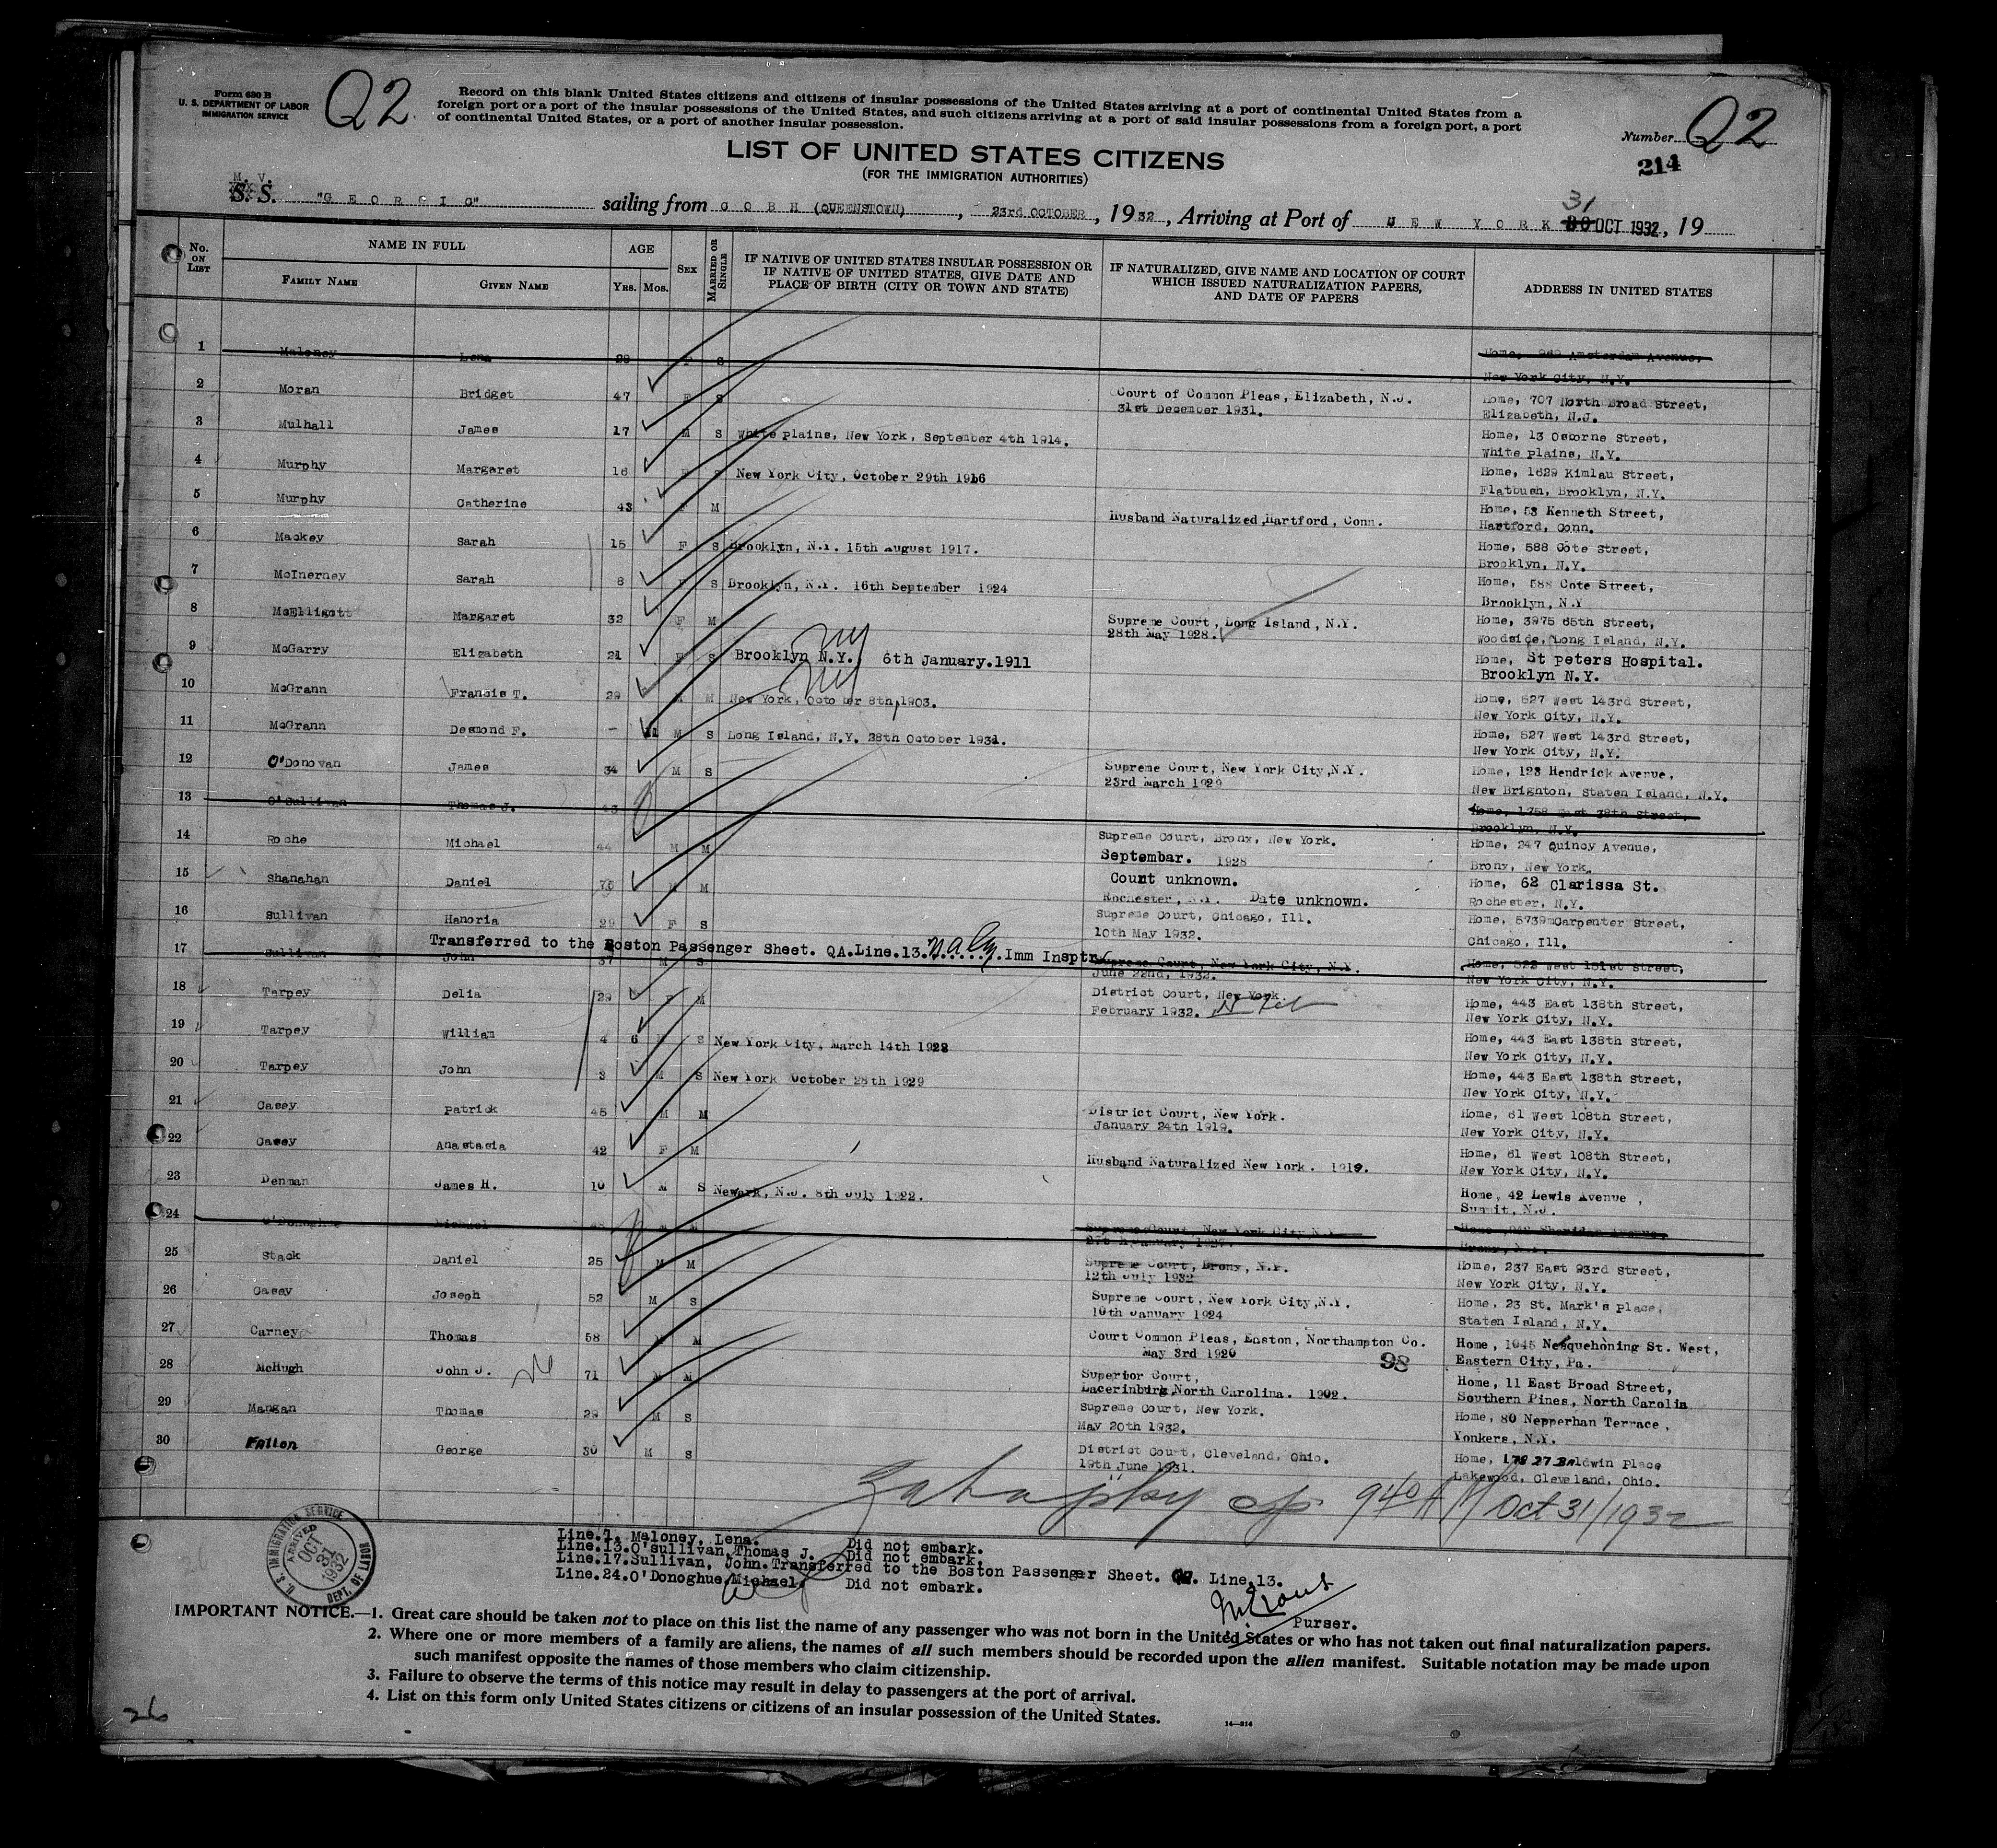 Form 630 B
U. S. DEPARTMENT OF LABOR
IMMIGRATION SERVICE
Q2
Record on this blank United States citizens and citizens of insular possessions of the United States arriving at a port of continental United States from a
foreign port or a port of the insular possessions of the United States, and such citizens arriving at a port of said insular possessions from a foreign port, a port
of continental United States, or a port of another insular possession.
Number Q2
214
LIST OF UNITED STATES CITIZENS
(FOR THE IMMIGRATION AUTHORITIES)
M. V.
S. S. "GEORGIC" sailing from COBH (QUEENSTOWN), 23rd OCTOBER, 1932, Arriving at Port of NEW YORK 31 30 OCT 1932, 19
No. ON LIST
NAME IN FULL
FAMILY NAME
GIVEN NAME
AGE
YRS. MOS.
SEX
MARRIED OR SINGLE
IF NATIVE OF UNITED STATES INSULAR POSSESSION OR
IF NATIVE OF UNITED STATES, GIVE DATE AND
PLACE OF BIRTH (CITY OR TOWN AND STATE)
IF NATURALIZED, GIVE NAME AND LOCATION OF COURT
WHICH ISSUED NATURALIZATION PAPERS,
AND DATE OF PAPERS
ADDRESS IN UNITED STATES
1 Maloney Lena F S Home, Amsterdam Avenue,
New York City, N.Y.
2 Moran Bridget 47 F S Court of Common Pleas, Elizabeth, N.J. Home, 707 North Broad Street,
31st December 1931. Elizabeth, N.J.
3 Mulhall James 17 M S White plains, New York, September 4th 1914. Home, 13 Osborne Street,
White plains, N.Y.
4 Murphy Margaret 16 F S New York City, October 29th 1916 Home, 1629 Kimlau Street,
Flatbush, Brooklyn, N.Y.
5 Murphy Catherine 43 F M Husband Naturalized, Hartford, Conn. Home, 53 Kenneth Street,
Hartford, Conn.
6 Mackey Sarah 15 F S Brooklyn, N.Y. 15th August 1917. Home, 588 Cote Street,
Brooklyn, N.Y.
7 McInerney Sarah 8 F S Brooklyn, N.Y. 16th September 1924 Home, 588 Cote Street,
Brooklyn, N.Y
8 McElligott Margaret 32 F M Supreme Court, Long Island, N.Y. Home, 3975 65th Street,
28th May 1928. Woodside, Long Island, N.Y.
9 McGarry Elizabeth 21 F S Brooklyn N.Y., 6th January.1911 Home, St peters Hospital.
NY Brooklyn N.Y.
10 McGrann Francis T. 29 M New York, October 8th, 1903. Home, 527 West 143rd Street,
NY New York City, N.Y.
11 McGrann Desmond F. - 11 M S Long Island, N.Y. 28th October 1931. Home, 527 West 143rd Street,
New York City, N.Y.
12 O'Donovan James 34 M S Supreme Court, New York City, N.Y. Home, 123 Hendrick Avenue,
23rd March 1929 New Brighton, Staten Island, N.Y.
13 O'Sullivan Thomas J. Home, 1758 East 38th Street,
Brooklyn, N.Y.
14 Roche Michael 44 M M Supreme Court, Bronx, New York. Home, 247 Quincy Avenue,
Septembar. 1928 Bronx, New York.
15 Shanahan Daniel 75 M M Count unknown. Home, 62 Clarissa St.
Rochester, N.Y. Date unknown. Rochester, N.Y.
16 Sullivan Hanoria 29 F S Supreme Court, Chicago, Ill. Home, 5739 Carpenter Street,
10th May 1932. Chicago, Ill.
Transferred to the Boston Passenger Sheet. QA.Line.13. Imm Insptr
17 Sullivan John 37 M S Supreme Court, New York City, N.Y. Home, 522 West 151st Street,
June 22nd, 1932. New York City, N.Y.
18 Tarpey Delia 29 F M District Court, New York. Home, 443 East 138th Street,
February 1932. New York City, N.Y.
19 Tarpey William 4 6 S New York City, March 14th 1928 Home, 443 East 138th Street,
New York City, N.Y.
20 Tarpey John 3 M S New York October 28th 1929 Home, 443 East 138th Street,
New York City, N.Y.
21 Casey Patrick 45 M M District Court, New York. Home, 61 West 108th Street,
January 24th 1919. New York City, N.Y.
22 Casey Anastasia 42 F M Husband Naturalized New York. 1919. Home, 61 West 108th Street,
New York City, N.Y.
23 Denman James H. 10 M S Newark, N.J. 8th July 1922. Home, 42 Lewis Avenue,
Summit, N.J.
24 O'Donoghue Michael M Supreme Court, New York City N.Y. Home, Sheridan Avenue,
27th January 1927. Bronx, N.Y.
25 Stack Daniel 25 M M Supreme Court, Bronx, N.Y. Home, 237 East 93rd Street,
12th July 1932 New York City, N.Y.
26 Casey Joseph 52 M S Supreme Court, New York City, N.Y. Home, 23 St. Mark's Place,
10th January 1924 Staten Island, N.Y.
27 Carney Thomas 58 M M Court Common Pleas, Easton, Northampton Co. Home, 1045 Nesquehoning St. West,
May 3rd 1920 98 Eastern City, Pa.
28 McHugh John J. 71 M M Superior Court, Home, 11 East Broad Street,
North Carolina. 1902. Southern Pines, North Carolin
29 Mangan Thomas 29 M S Supreme Court, New York. Home, 80 Nepperhan Terrace,
May 20th 1932. Yonkers, N.Y.
30 Fallon George 30 M S District Court, Cleveland, Ohio. Home, Baldwin Place
19th June 1931. Lakewood, Cleveland, Ohio.
940 AM Oct 31/1932
U. S. IMMIGRATION SERVICE
ARRIVED
OCT
31
1932
DEPT. OF LABOR
Line.1. Maloney, Lena. Did not embark.
Line.13.O'sullivan,Thomas J. Did not embark.
Line.17.Sullivan, John.Transferred to the Boston Passenger Sheet. Line.13.
Line.24.O'Donoghue,Michael. Did not embark.
Purser.
IMPORTANT NOTICE.—1. Great care should be taken not to place on this list the name of any passenger who was not born in the United States or who has not taken out final naturalization papers.
2. Where one or more members of a family are aliens, the names of all such members should be recorded upon the alien manifest. Suitable notation may be made upon
such manifest opposite the names of those members who claim citizenship.
3. Failure to observe the terms of this notice may result in delay to passengers at the port of arrival.
4. List on this form only United States citizens or citizens of an insular possession of the United States.
14—814
26